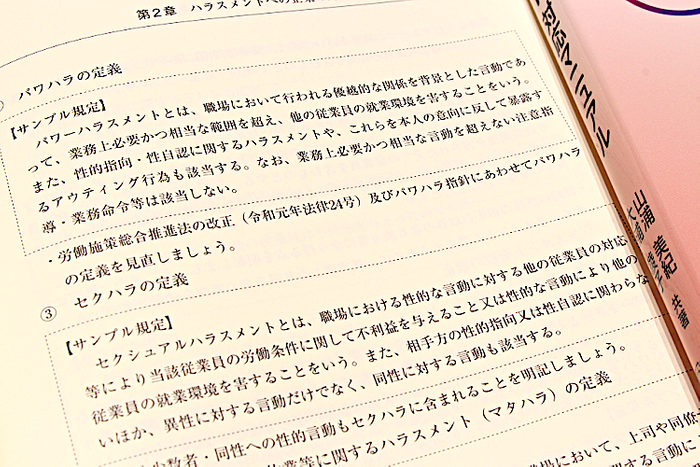 第2章 ハラスメントへの
パワハラの定義
【サンプル規定】
パワーハラスメントとは、職場において行われる優越的な関係を背景とした言動であ
って、業務上必要かつ相当な範囲を超え、他の従業員の就業環境を害することをいう。
また、性的指向・性自認に関するハラスメントや、これらを本人の意向に反して暴露す
るアウティング行為も該当する。なお、業務上必要かつ相当な言動を超えない注意指
導・業務命令等は該当しない。
・労働施策総合推進法の改正（令和元年法律24号）及びパワハラ指針にあわせてパワハラ
の定義を見直しましょう。
③ セクハラの定義
【サンプル規定】
セクシュアルハラスメントとは、職場における性的な言動に対する他の従業員の対応
等により当該従業員の労働条件に関して不利益を与えること又は性的な言動により他の
従業員の就業環境を害することをいう。また、相手方の性的指向又は性自認に関わらな
いほか、異性に対する言動だけでなく、同性に対する言動も該当する。
少数者・同性への性的言動もセクハラに含まれることを明記しましょう。
業等に関するハラスメント（マタハラ）の定義
職場において、上司や同僚
対応マニュアル
山浦美紀
共著